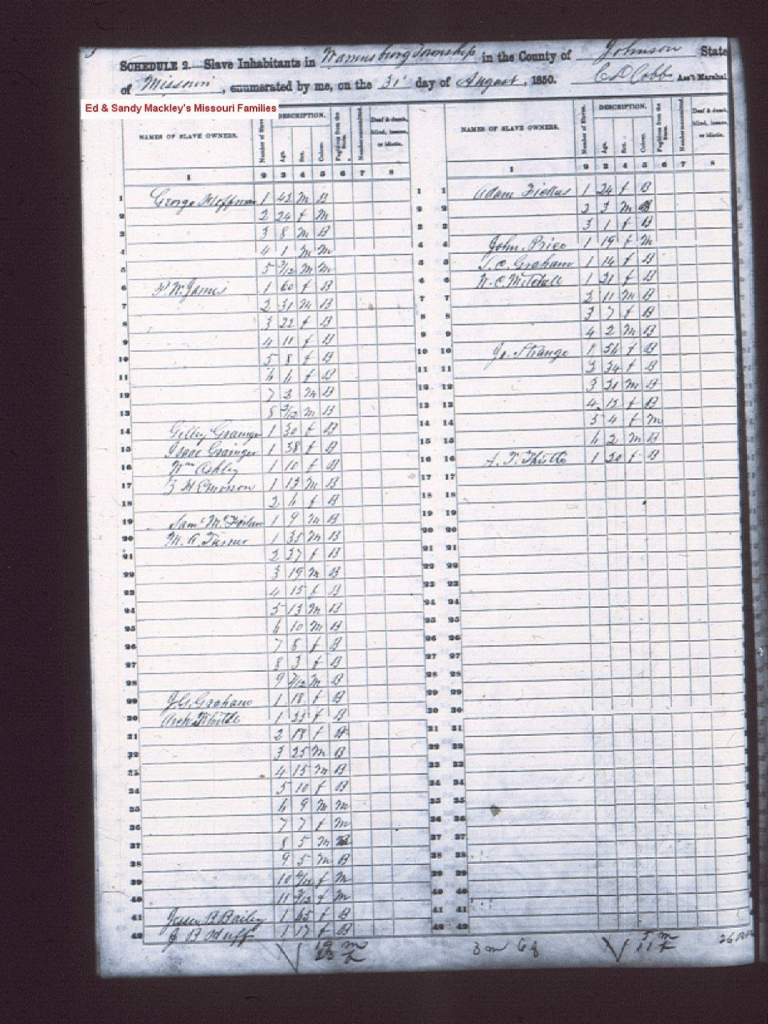 SCHEDULE 2. Slave Inhabitants in Warrensburg Township in the County of Johnson State
of Missouri, enumerated by me, on the 31st day of August, 1850. C D Cobb Ass't Marshal
Ed & Sandy Mackley's Missouri Families
NAMES OF SLAVE OWNERS. Number of Slaves. DESCRIPTION. Age. Sex. Colour. Fugitives from the State. Number manumitted. Deaf & dumb, blind, insane, or idiotic.
1 2 3 4 5 6 7 8
1 George Hoffman 1 42 M B
2 2 24 f M
3 3 8 M B
4 4 1 M M
5 5 3/12 M M
6 1 60 f B
7 2 31 M B
8 3 22 f B
9 4 11 f B
10 5 8 f B
11 6 4 f B
12 7 2 M B
13 8 M B
14 1 30 f B
15 Isaac Grainger 1 38 f B
16 Wm Ashley 1 10 f B
17 Emerson 1 13 M B
18 2 6 f B
19 1 9 M B
20 M. A. Turner 1 35 M B
21 2 37 f B
22 3 19 M B
23 4 15 f B
24 5 13 M B
25 6 10 M B
26 7 f B
27 8 3 f B
28 9 M B
29 J. G. Graham 1 18 f B
30 1 f B
31 2 18 f B
32 3 25 M B
33 4 15 M B
34 5 10 f B
35 6 9 M M
36 7 7 f M
37 8 5 M
38 9 5 M B
39 10 f M
40 11 f M
41 Jesse B Bailey 1 65 f B
42 J B Huff 1 17 f B
19 m
23 f
NAMES OF SLAVE OWNERS. Number of Slaves. DESCRIPTION. Age. Sex. Colour. Fugitives from the State. Number manumitted. Deaf & dumb, blind, insane, or idiotic.
1 2 3 4 5 6 7 8
1 Adam 1 24 f B
2 2 3 M B
3 3 1 f B
4 John Price 1 19 f M
5 Graham 1 14 f B
6 W. C. Mitchell 1 21 f B
7 2 11 M B
8 3 7 f B
9 4 2 M B
10 Jo. Strange 1 56 f B
11 2 34 f B
12 3 21 M B
13 4 13 f B
14 5 4 f M
15 6 2 M B
16 1 20 f B
17
18
19
20
21
22
23
24
25
26
27
28
29
30
31
32
33
34
35
36
37
38
39
40
41
42
3 m 6 f
5 m
11 f